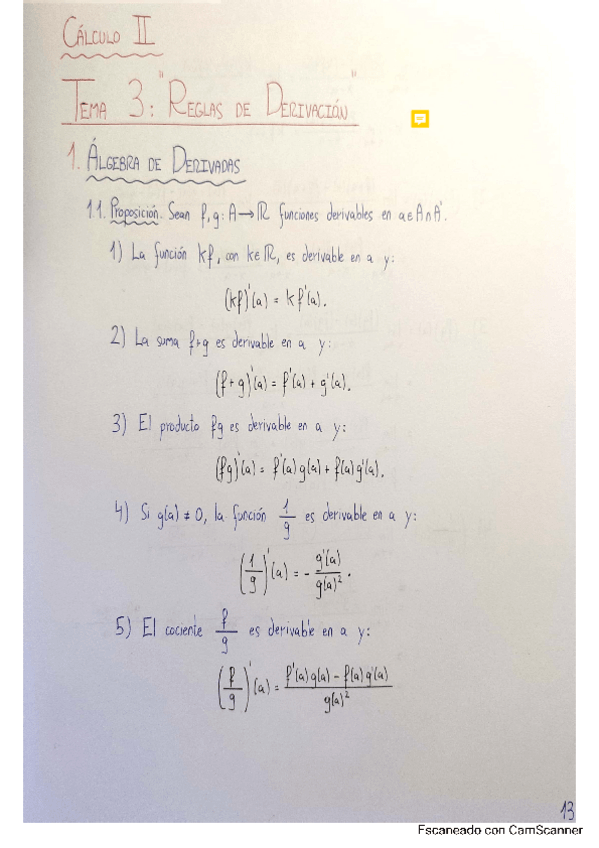 CÁLCULO II
TEMA 3: "REGLAS DE DERIVACIÓN"
1. ÁLGEBRA DE DERIVADAS
1.1. Proposición. Sean f, g: A → ℝ funciones derivables en a ∈ A ∩ A'.
1) La función kf, con k ∈ ℝ, es derivable en a y:
(kf)'(a) = k f'(a).
2) La suma f+g es derivable en a y:
(f + g)'(a) = f'(a) + g'(a).
3) El producto fg es derivable en a y:
(fg)'(a) = f'(a) g(a) + f(a) g'(a).
4) Si g(a) ≠ 0, la función 1/g es derivable en a y:
(1/g)'(a) = - g'(a)/g(a)².
5) El cociente f/g es derivable en a y:
(f/g)'(a) = f'(a) g(a) - f(a) g'(a)/g(a)²
13
Escaneado con CamScanner